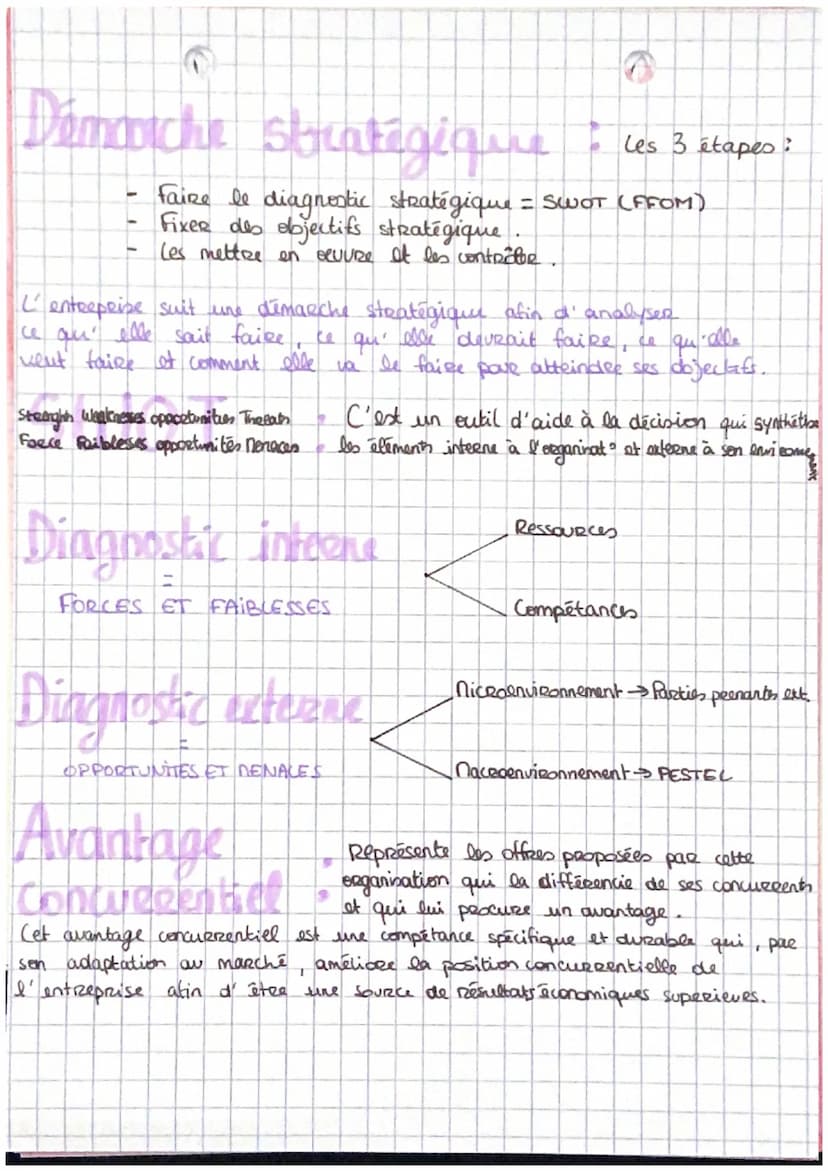 Démarche stratégique : Les 3 étapes :
- Faire le diagnostic stratégique = SWOT (FFOM)
- Fixer des objectifs stratégique .
- Les mettre en oeuvre et les contrôler .
L'entreprise suit une démarche stratégique afin d'analyser
ce qu'elle sait faire, ce qu'elle devrait faire, ce qu'elle
veut faire et comment elle va le faire pour atteindre ses objectifs.
SWOT
Strenght Weaknesses opportunities Threats : C'est un outil d'aide à la décision qui synthétise
Force Faiblesses opportunités Menaces les éléments interne à l'organisat° et externe à son environnement
Diagnostic interne
=
FORCES ET FAIBLESSES
Ressources
Compétances
Diagnostic externe
=
OPPORTUNITES ET MENACES
Microenvironnement → Parties prenants ext.
Macroenvironnement → PESTEL
Avantage
concurrentiel :
Représente les offres proposées par cette
organisation qui la différencie de ses concurrents
et qui lui procure un avantage .
Cet avantage concurrentiel est une compétance spécifique et durable qui , par
son adaptation au marché , améliore la position concurrentielle de
l'entreprise afin d'être une source de résultats économiques superieurs.